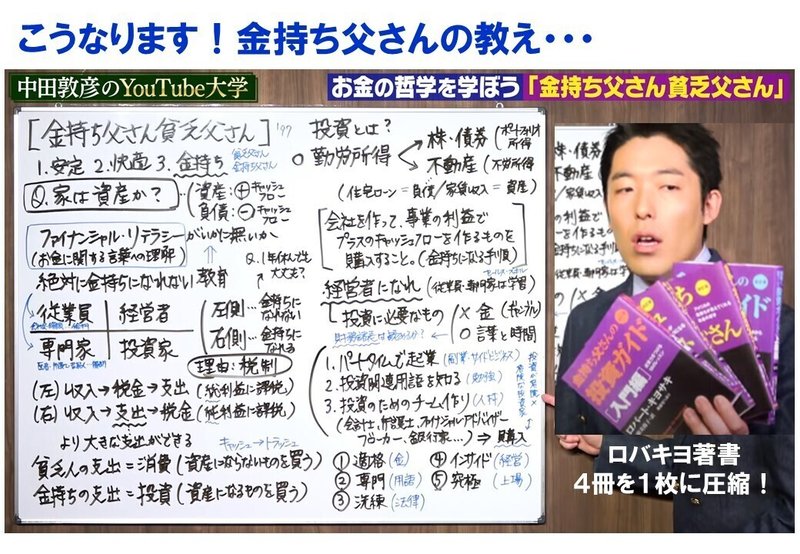 こうなります！金持ち父さんの教え・・・
中田敦彦のYouTube大学
お金の哲学を学ぼう「金持ち父さん貧乏父さん」
[金持ち父さん貧乏父さん] '97
1.安定 2.快適 3.金持ち
貧乏父さん
金持ち父さん
Q.家は資産か？
資産:⊕キャッシュフロー
負債:⊖キャッシュフロー
ファイナンシャル・リテラシーがいかに無いか
(お金に関する言葉への理解)
絶対に金持ちになれない教育
Q.1年休んでも大丈夫？
従業員 経営者
専門家 投資家
左側…金持ちになれない
右側…金持ちになれる
理由:税制
(左)収入→税金→支出(総利益に課税)
(右)収入→支出→税金(純利益に課税)
より大きな支出ができる
キャッシュ→トラッシュ
貧乏人の支出=消費(資産にならないものを買う)
金持ちの支出=投資(資産になるものを買う)
投資とは？
○勤労所得
株・債券(ポートフォリオ所得
不動産(不労所得
(住宅ローン=負債/家賃収入=資産)
会社を作って、事業の利益で
プラスのキャッシュフローを作るものを
購入すること。(金持ちになる手順)
経営者になれ(従業員・専門家は学習)
投資に必要なもの
×金(ギャンブル)
○言葉と時間
1.パートタイムで起業(副業・サイドビジネス)
2.投資関専用語を知る(勉強)
3.投資のためのチーム作り(人材)
(会計士、弁護士、ファイナンシャルアドバイザー
ブローカー、銀行家…)⇒購入
①適格(金)
②専門(用語)
③洗練(法律)
④インサイド(経営)
⑤究極(上場)
金持ち父さんの
投資ガイド
入門編
ロバート・キヨサキ
ロバキヨ著書
4冊を1枚に圧縮！